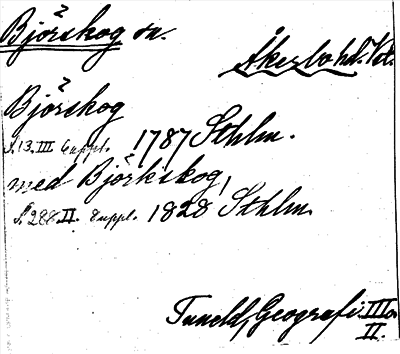 Björskog sn.
Åkerbo hd. Vstm.
Björskog
s. 13. III Suppl. 1787 Sthlm.
med Björkskog,
s. 288. II. Suppl. 1828 Sthlm.
Tuneld, Geografi. III o.
II.